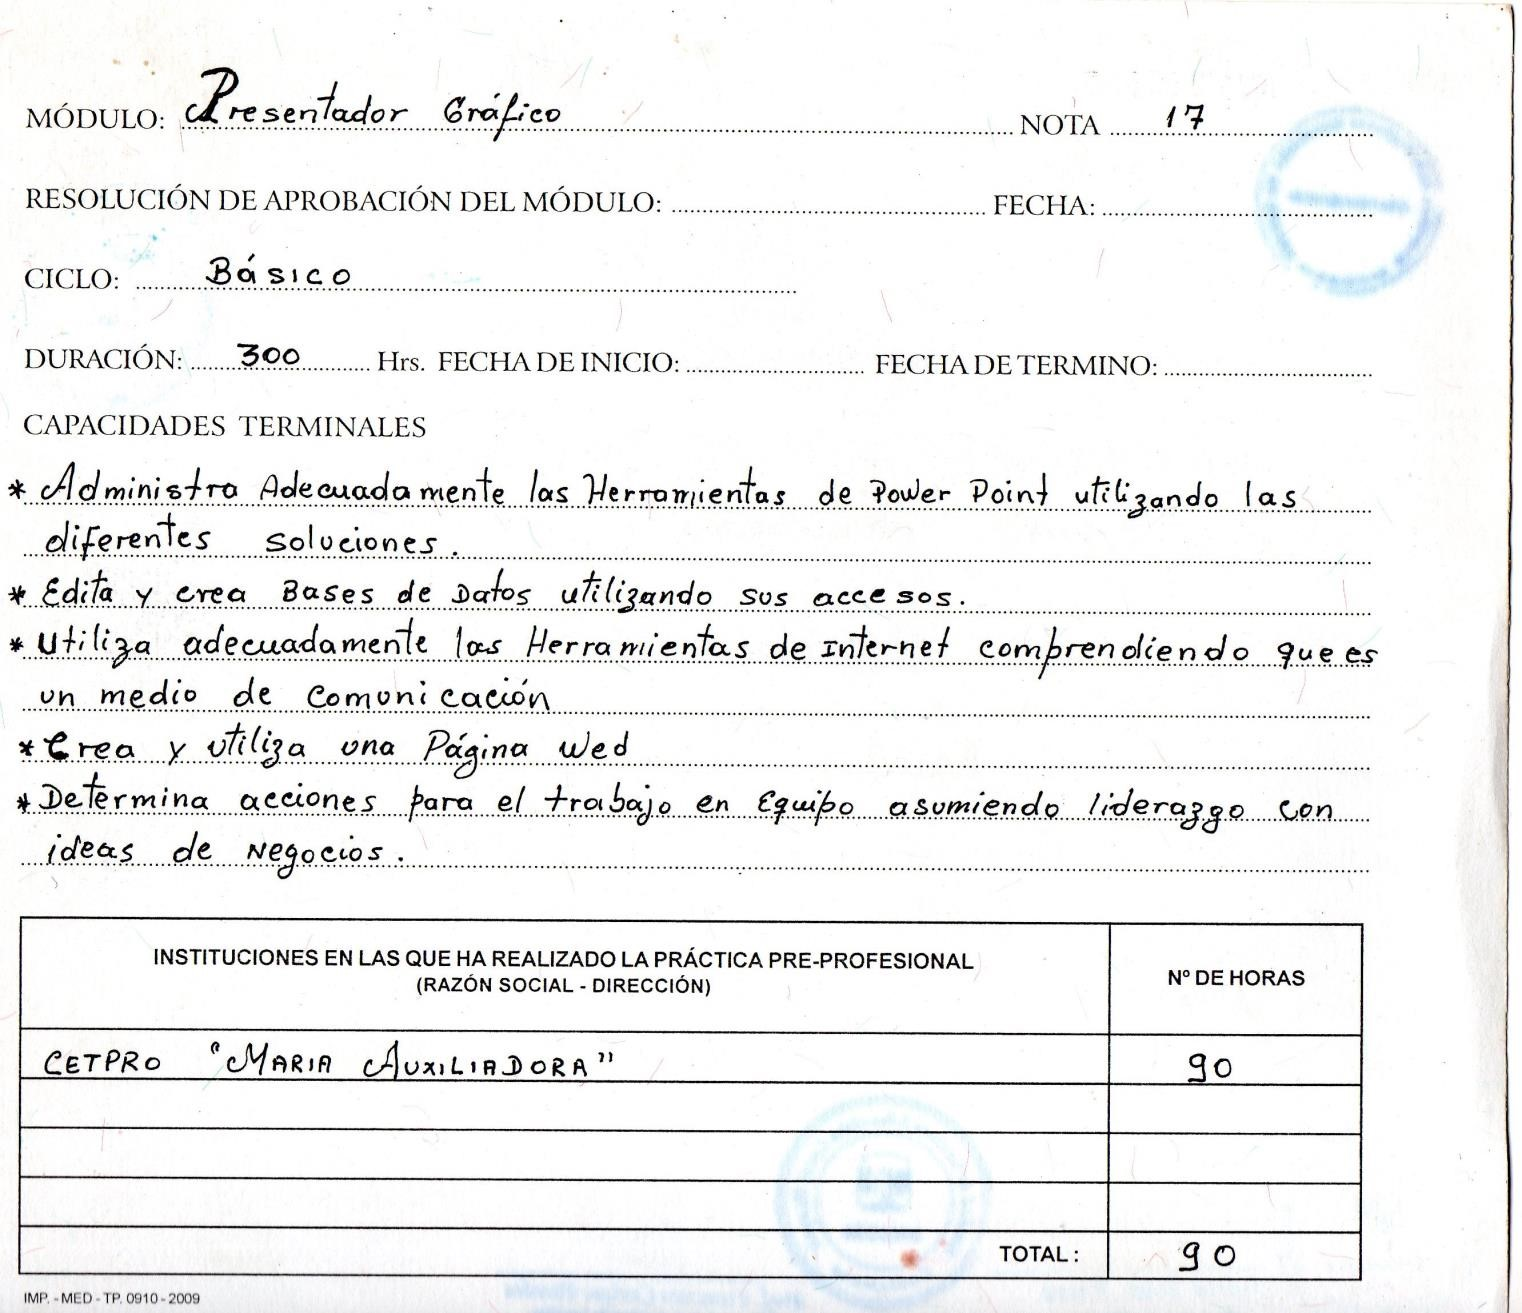 MÓDULO: Presentador Gráfico NOTA 17
RESOLUCIÓN DE APROBACIÓN DEL MÓDULO: FECHA:
CICLO: Básico
DURACIÓN: 300 Hrs. FECHA DE INICIO: FECHA DE TERMINO:
CAPACIDADES TERMINALES
* Administra Adecuadamente las Herramientas de Power Point utilizando las
diferentes soluciones.
* Edita y crea Bases de Datos utilizando sus accesos.
* Utiliza adecuadamente las Herramientas de Internet comprendiendo que es
un medio de Comunicación
* Crea y utiliza una Página Wed
* Determina acciones para el trabajo en Equipo asumiendo liderazgo con
ideas de Negocios.
INSTITUCIONES EN LAS QUE HA REALIZADO LA PRÁCTICA PRE-PROFESIONAL
(RAZÓN SOCIAL - DIRECCIÓN)
Nº DE HORAS
CETPRO "MARIA AUXILIADORA" 90
TOTAL: 90
IMP. - MED - TP. 0910 - 2009